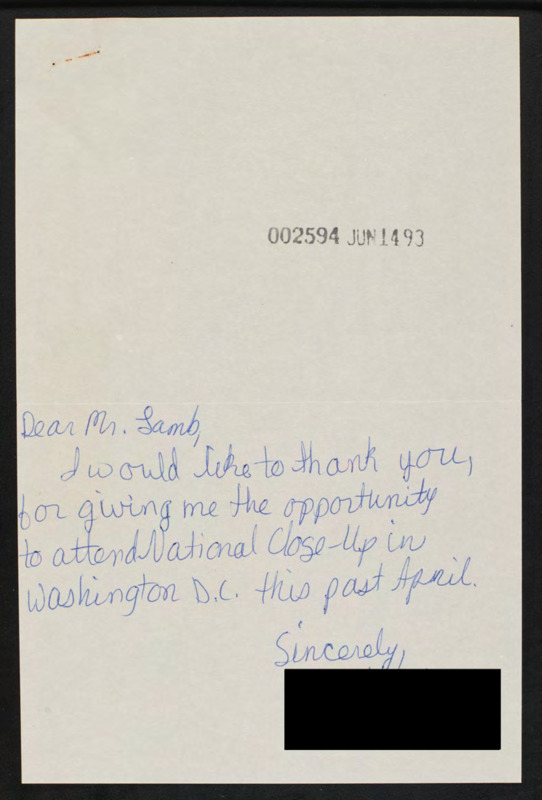 002594 JUN 14 93
Dear Mr. Lamb,
I would like to thank you,
for giving me the opportunity
to attend National Close-Up in
Washington D.C. this past April.
Sincerely,